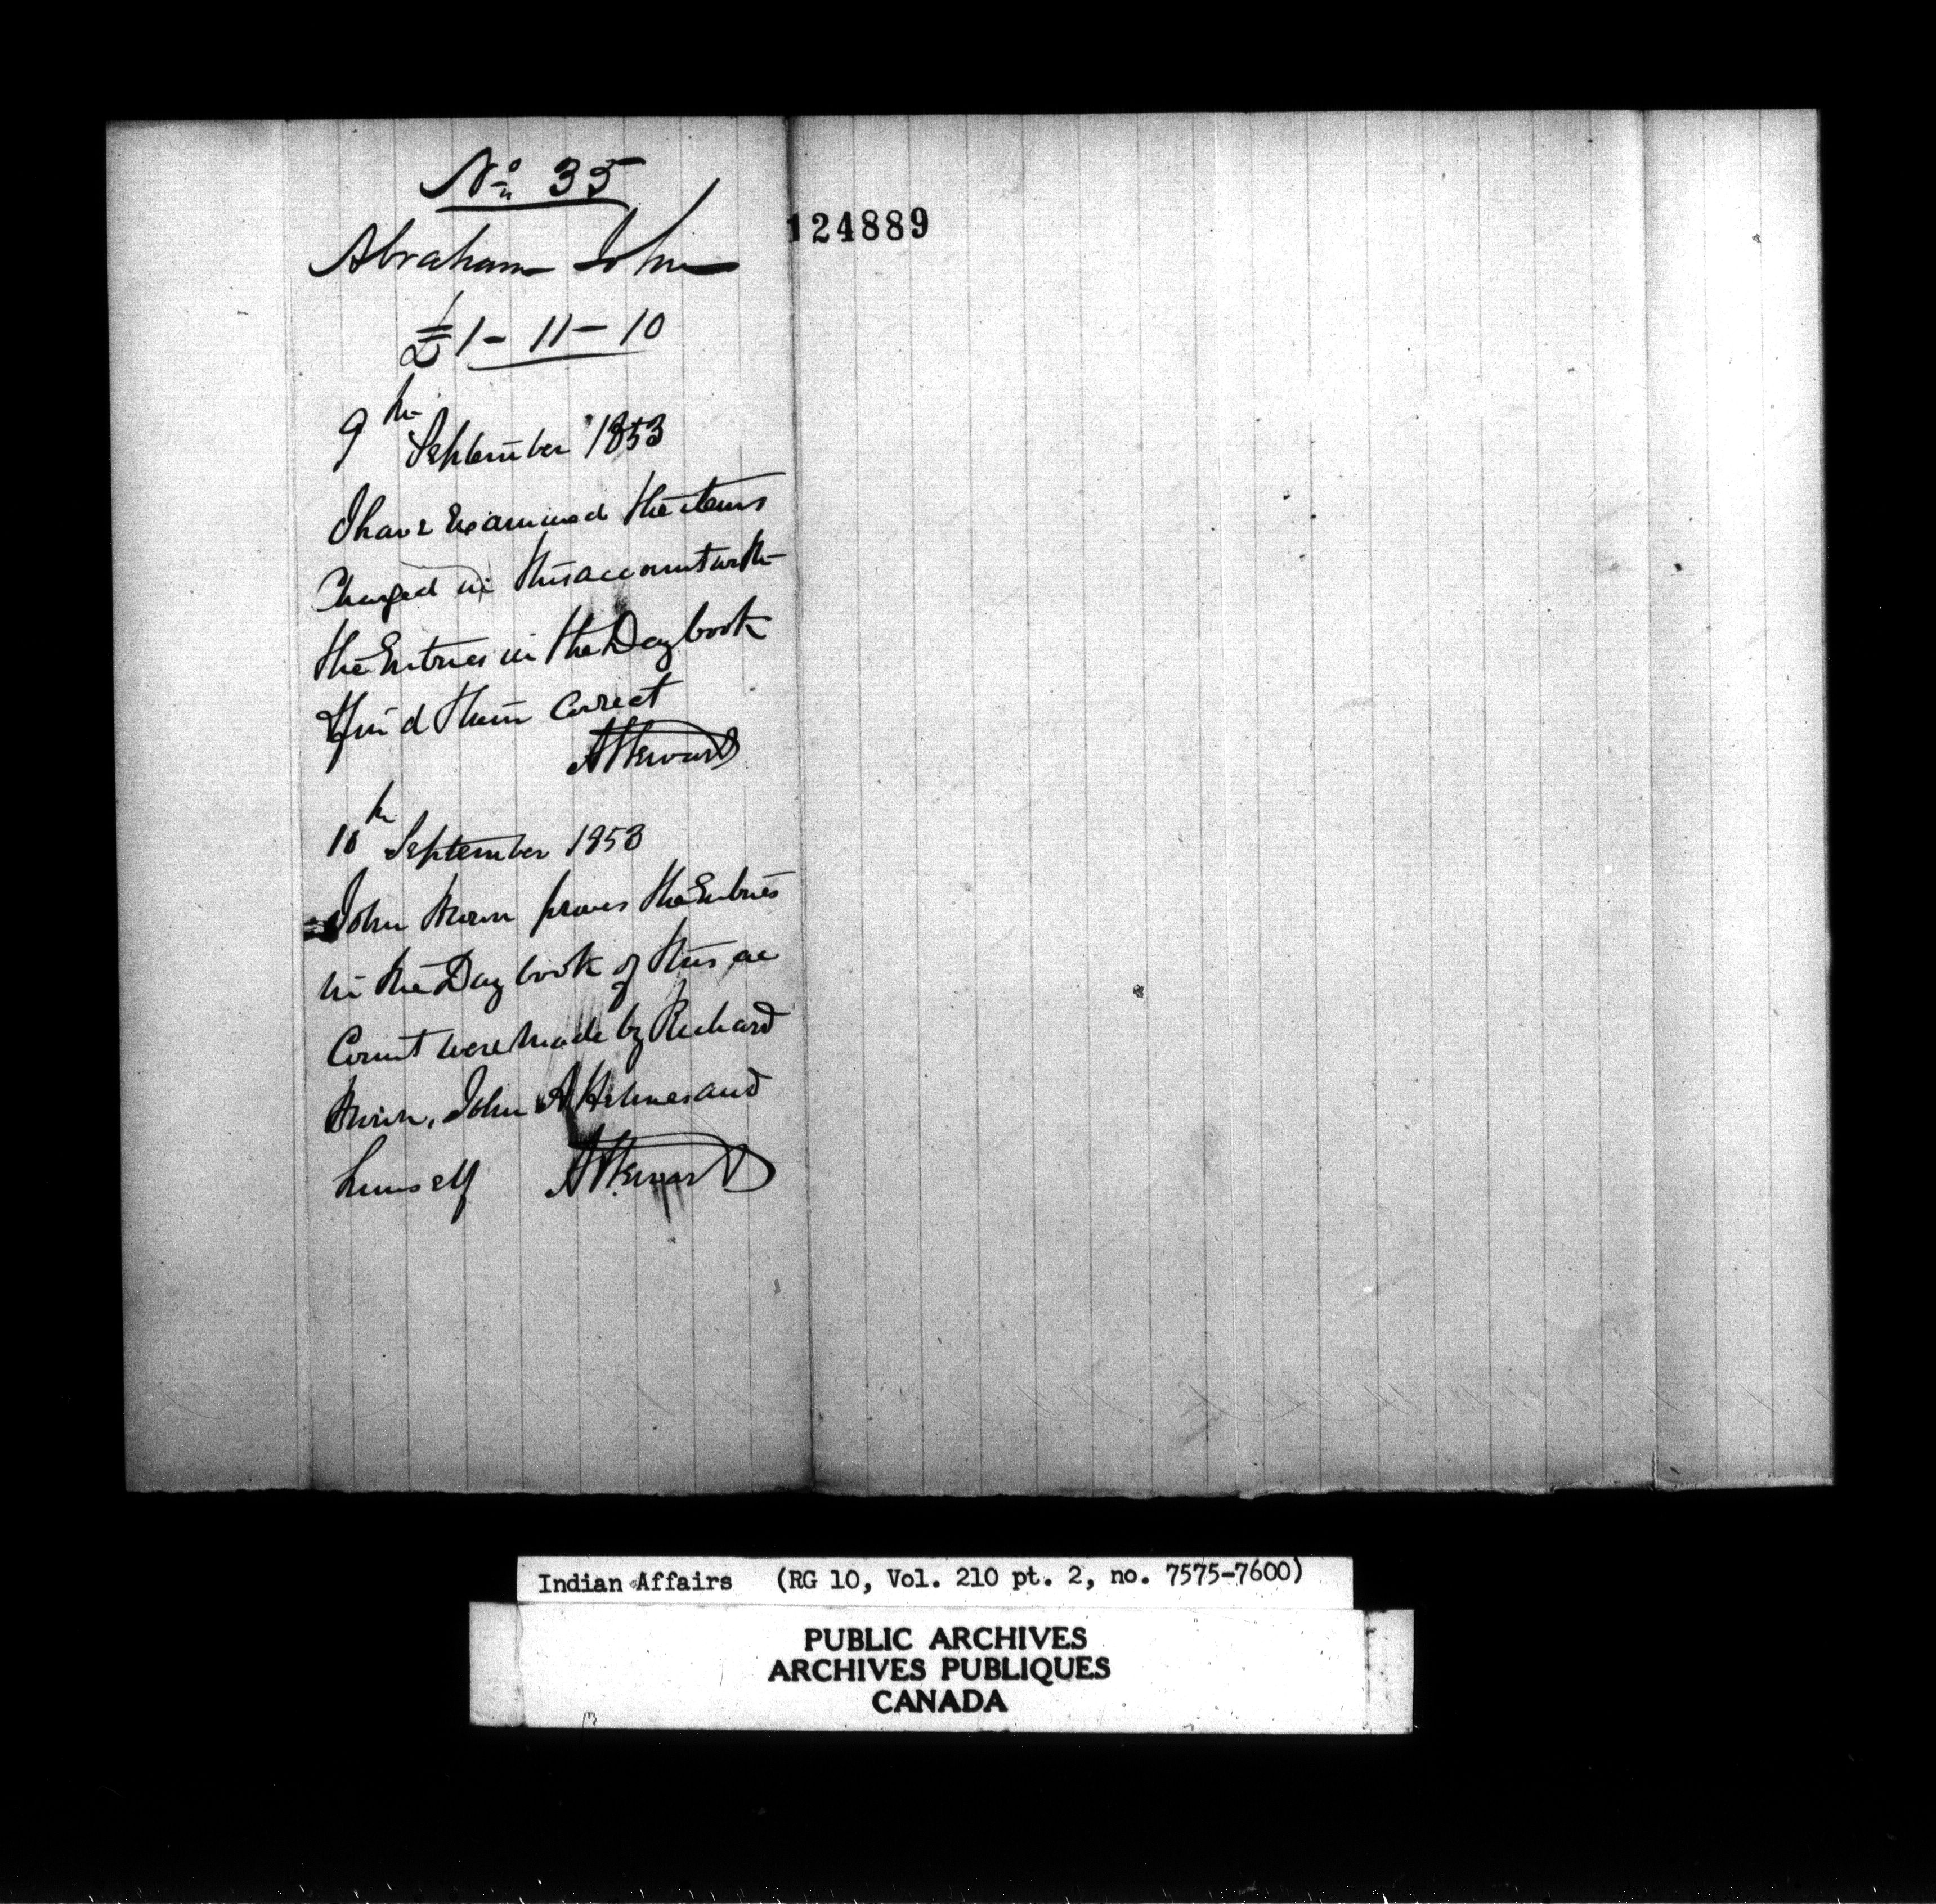 No 35
Abraham John
£1 - 11 - 10
9th September 1853
I have Examined the items
Charged in this account with
the Entries in the Day book
& find them Correct
AStewart
10th September 1853
John proves the Entries
in the Day book of this ac
Count were made by Richard
John A Holmes and
himself AStewart
124889
Indian Affairs (RG 10, Vol. 210 pt. 2, no. 7575-7600)
PUBLIC ARCHIVES
ARCHIVES PUBLIQUES
CANADA